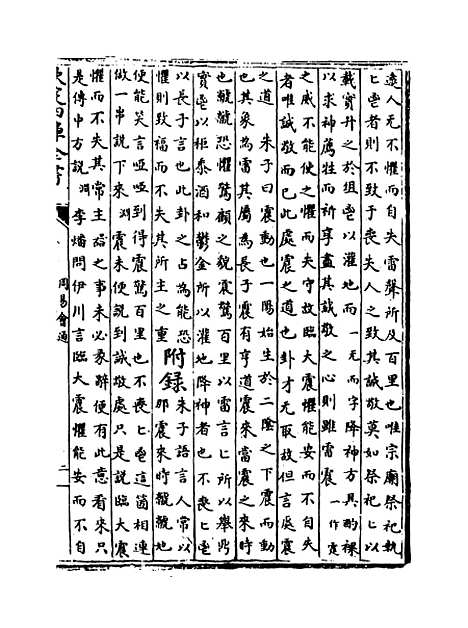 遠人无不懼而自失雷聲所及百里也唯宗廟祭祀執
匕鬯者則不致于喪失人之致其誠敬莫如祭祀匕以
載實升之於俎鬯以灌地而一无而字降神方其酌祼
以求神薦牲而祈享盡其誠敬之心則雖雷震一作震雷
之威不能使之懼而失守故臨大震懼能安而不自失
者唯誠敬而已此處震之道也卦才无取故但言處震
之道 朱子曰震動也一陽始生於二陰之下震而動
也其象為雷其屬為長子震有亨道震來當震之來時
也虩虩恐懼驚顧之貌震驚百里以雷言匕所以舉鼎
實鬯以秬黍酒和鬱金所以灌地降神者也不喪匕鬯
以長子言也此卦之占為能恐
懼則致福而不失其所主之重附録朱子語言人常似那震來時虩虩地
便能笑言啞啞到得震驚百里也不喪匕鬯這箇相連
做一串說下來淵震未便說到誠敬處只是說臨大震
懼而不失其常主器之事未必彖辭便有此意看來只
是傳中方說淵李燔問伊川言臨大震懼能安而不自
欽定四庫全書
周易會通
二